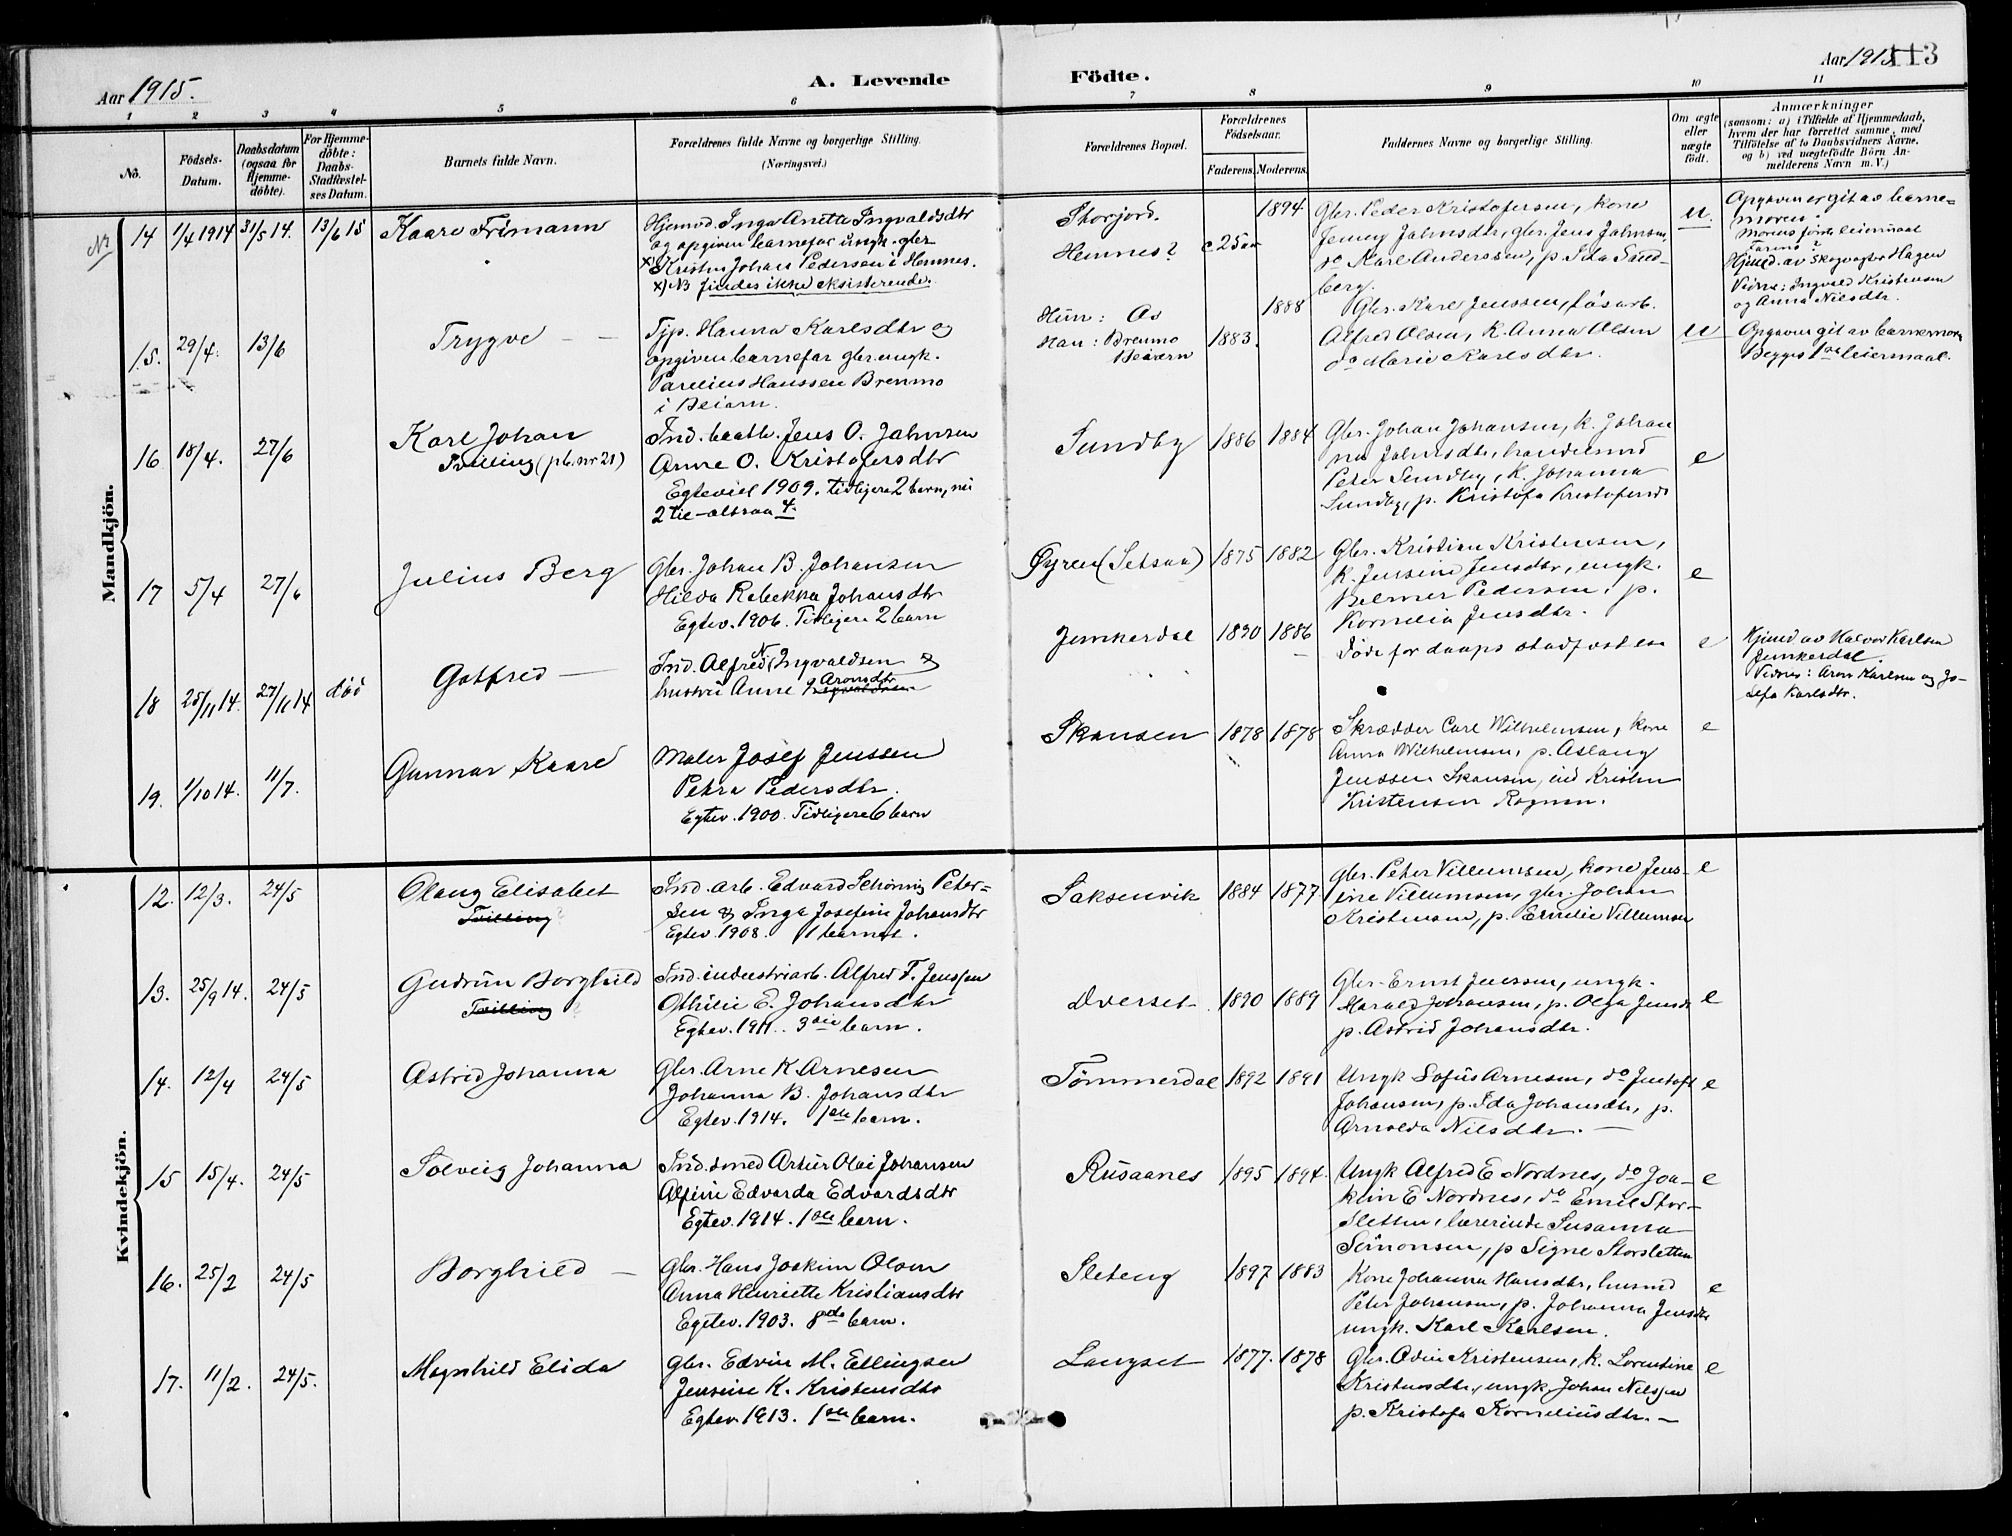 Aar 1915.
A. Levende
Födte.
Aar 1915
113
1 2 3 4 5 6 7 8 9 10 11
No.
Födsels-
Datum.
Daabsdatum
(ogsaa for
Hjemme-
döbte).
For Hjemme-
döbte:
Daabs-
Stadfæstel-
ses Datum.
Barnets fulde Navn.
Forældrenes fulde Navne og borgerlige Stilling.
(Næringsvei.)
Forældrenes Bopæl.
Forældrenes
Födselsaar.
Faderens. Moderens.
Faddernes Navne og borgerlige Stilling.
Om ægte
eller
uægte
födt.
Anmærkninger
(saasom: a) i Tilfælde af Hjemmedaab,
hvem der har forrettet samme, med
Tilföielse af to Daabsvidners Navne,
og b) ved uægtefödte Börn An-
melderens Navn m. V.)
Mandkjön.
Nr 14 1/4 1914 31/5 14. 13/6 15 Kaare Frimann
Hjemv. Inga Anette Ingvaldsdtr
og opgiven barnefar ungk. gbr
x) Kristen Johans Pedersen i Hemnes.
x) NB findes ikke eksisterende.
Storjord.
Hemnes?
c 25 aar 1894
Gbr. Peder Kristofersen, kone
Jenny Jahnsdtr, gbr. Jens Jahnsen,
do Karl Anderssen, p. Ida Sand-
berg.
u.
Opgaven er git av barne-
moren.
Morens første leiermaal
Farens?
Hjmd. av skogvogter Hagen
Vidne: Ingvald Kristensen
og Anna Nilsdtr.
15. 29/4. 13/6 Trygve
Tjp. Hanna Karlsdtr og
opgiven barnefar gbr. ungk.
Parelius Hanssen Brenmo
i Beiarn.
Hun: Os
Han: Brenmo
Beiarn
1883. 1888
Gbr. Karl Jenssen, løsarb.
Alfred Olsen, K. Anna Olsen
do Marie Karlsdtr.
u
Opgaven git av barnemor.
Begges 1ste leiermaal.
16 18/4. 27/6 Karl Johan
Tvilling (pb. nr 21)
Ind. baatb. Jens O. Jahnsen
Anne O. Kristofersdtr
Egteviel 1909. tidligere 2 barn, nu
2 tie - altsaa 4.
Sundby 1886 1884
Gbr. Johan Johansen, k. Johan
na Jahnsdtr, handelsmd
Peter Sundby, k. Johanna
Sundby, p. Kristofa Kristofersd
e
17 5/4 27/6 Julius Berg
Gbr. Johan B. Johansen
Hilda Rebekka Johansdtr
Egtev. 1906. Tidligere 2 barn
Øyren (Setsaa) 1875 1882
Gbr. Kristian Kristensen,
k. Jensine Jensdtr, ungk.
Helmer Pedersen, p.
Kornelia Jensdtr.
e
18 25/11 14. 27/11 14 død Gotfred
Ind. Alfred N Ingvaldsen &
hustru Anne Aronsdtr
Junkerdal 1890 1886
Døde for daaps stadfestelse
e
Hjmd av Halvor Karlsen
Junkerdal.
Vidnes: Aron Karlsen og Jo-
sefa Karlsdtr.
19. 1/10 14. 11/7. Gunnar Kaare
Maler Josef Jenssen
Petra Pedersdtr.
Egtev. 1900. Tidligere 6 barn
Skansen 1878 1878
Skrædder Carl Wilhelmsen, kone
Anna Wilhelmsen, p. Aslaug
Jenssen Skansen, ind Kristen
Kristensen Rognan.
e
Kvindekjön.
12. 12/3. 24/5 Olaug Elisabet
Tvilling
Ind. arb. Edvard Schöning Peter-
sen & Inga Josefine Johansdtr
Egtev. 1908. 1 barnet.
Saksenvik 1884 1877
gbr. Peter Villumsen, kone Jens-
ine Villumsen, gbr. Johan
Kristensen, p. Emilie Villumsen
e
13. 25/9 14. 24/5 Gudrun Borghild
Tvilling
Ind. industriarb. Alfred F. Jenssen
Othilie E. Johansdtr
Egtev. 1911. 3die barn.
Dverset 1890 1889
Gbr. Ernst Jenssen, ungk.
Harald Johansen, p. Olga Jensdtr
p. Astrid Johansdtr.
e
14. 12/4 24/5 Astrid Johanna
Gbr. Arne K. Arnesen
Johanna B. Johansdtr
Egtev. 1914. 1ste barn.
Tømmerdal 1892 1891
Ungk Sofus Arnesen, do Justoft
Johansen, p. Ida Johansdtr, p.
Arnolda Nilsdtr.
e
15 15/4. 24/5 Solveig Johanna
Ind. smed Artur Olai Johansen
Alfine Edvarda Edvardsdtr
Egtev. 1914. 1ste barn.
Rusaanes 1895 1894.
Ungk Alfred E Nordnes, do Joa-
kim E Nordnes, do Emil Stor-
sletten, lærerinde Susanna
Simonsen, p Signe Storsletten
e
16. 25/2 24/5 Borghild
gbr. Hans Joakim Olsen
Anna Henriette Kristiansdtr
Egtev. 1903. 8de barn.
Sleteng 1897 1883
Kone Johanna Hansdtr, husmd
Peter Johansen, p. Johanna Jensdtr
ungk. Karl Karlsen.
e
17. 11/2. 24/5. Magnhild Elida
gbr. Edvin M. Ellingsen
Jensine K. Kristensdtr
Egtev. 1913. 1ste barn.
Langset 1877. 1878
Gbr. Odin Kristensen, k. Lorentine
Kristensdtr, ungk Johan Nilssen
p. Kristofa Korneliusdtr.
e